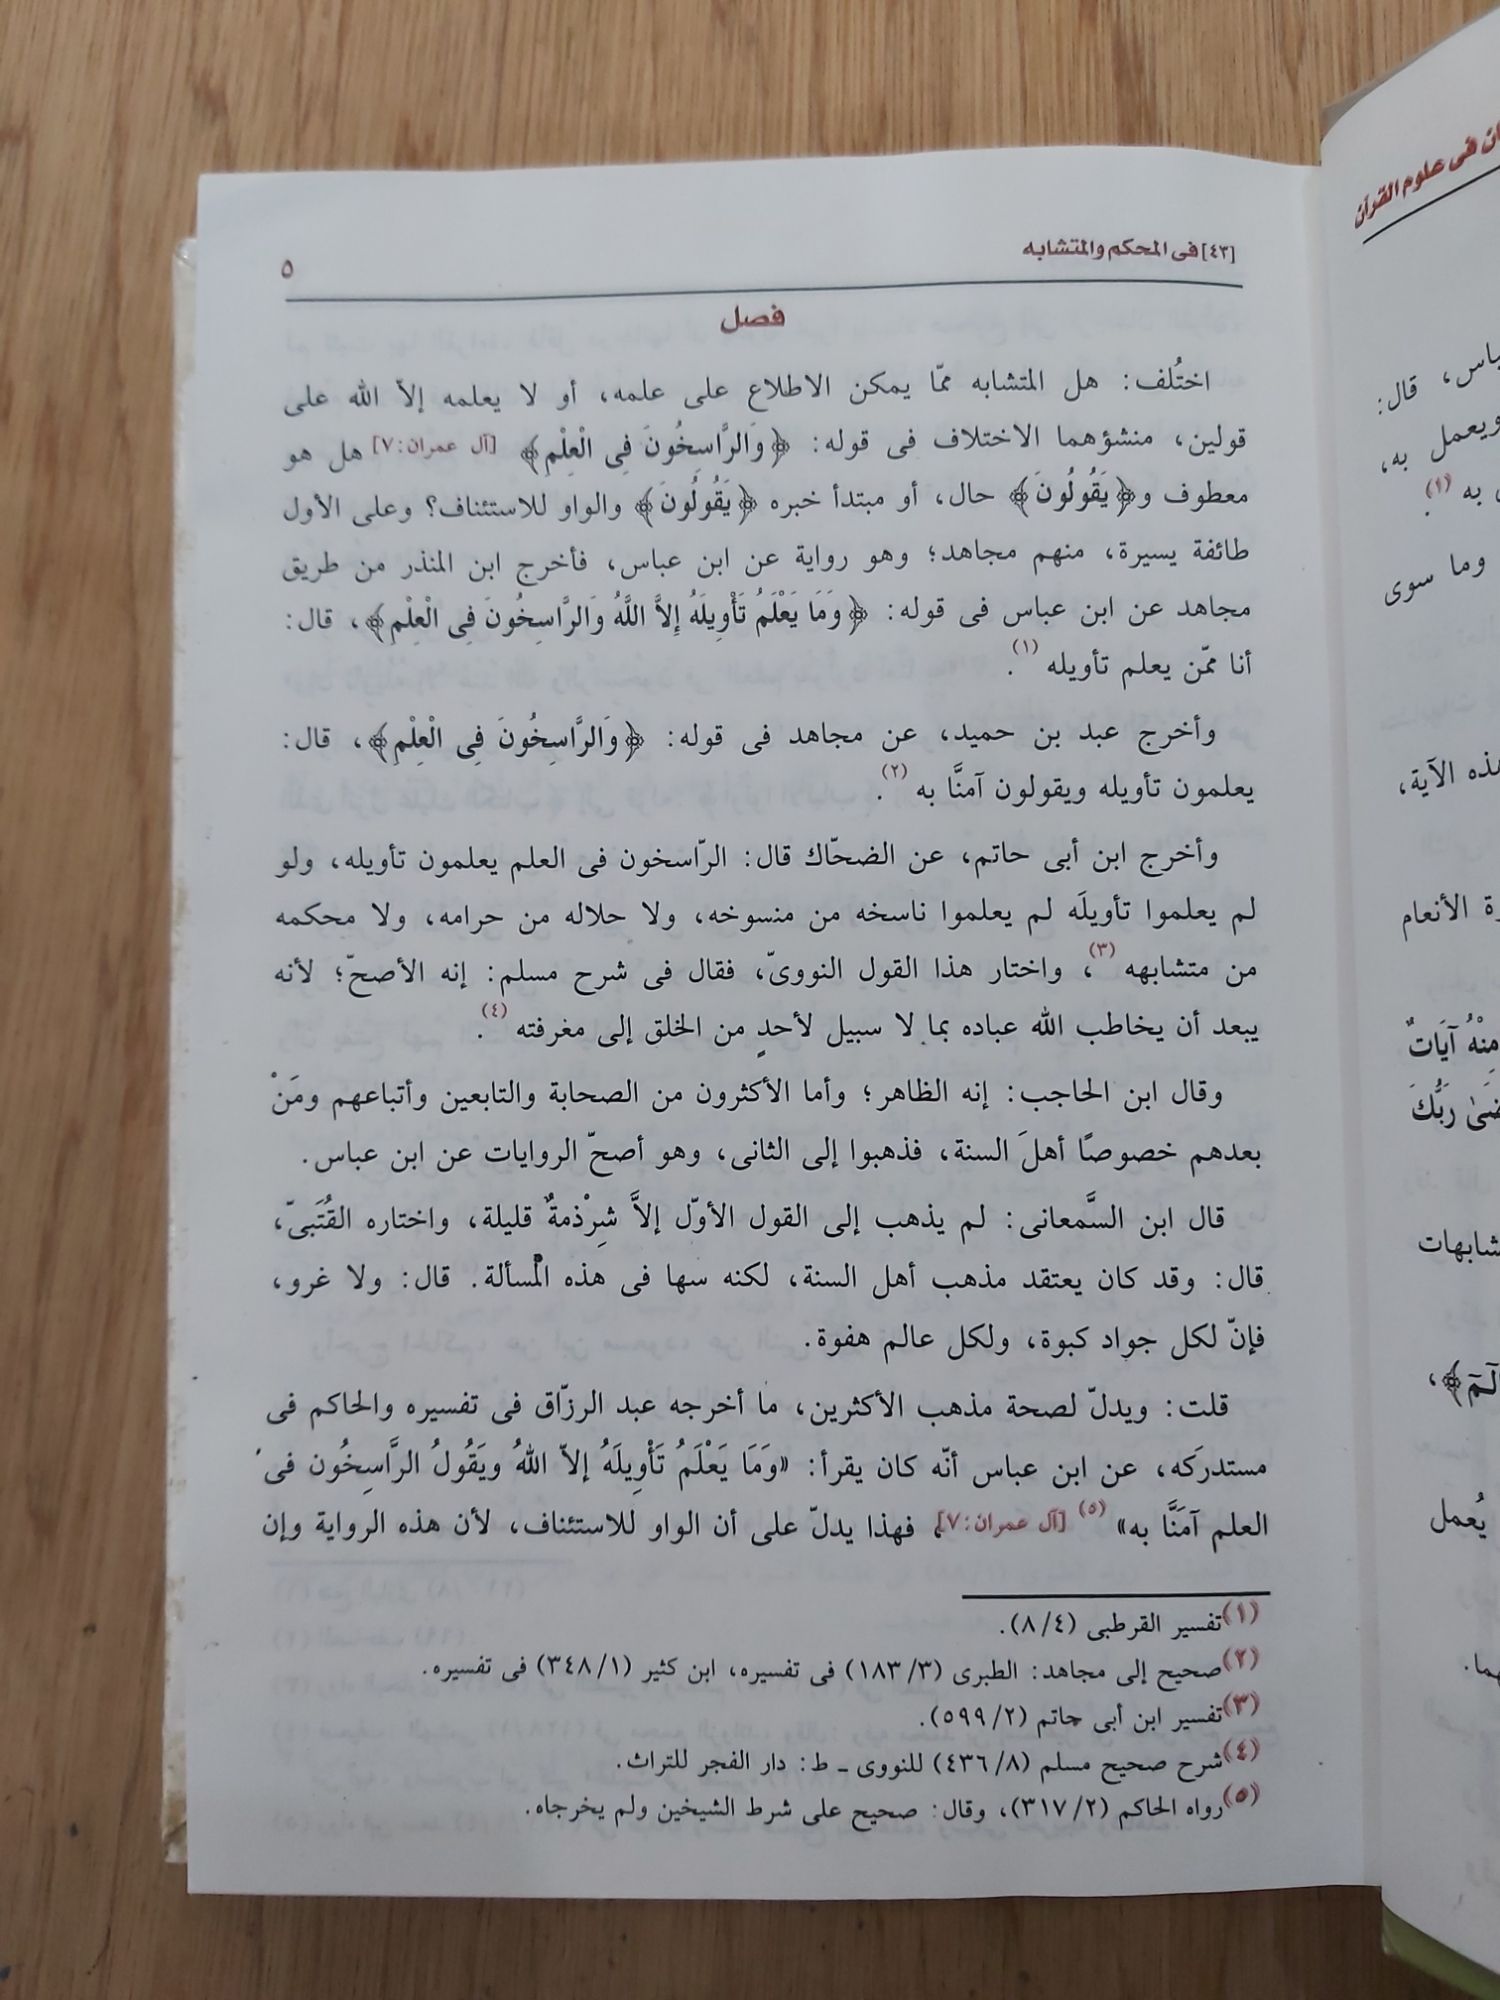 [٤٣] فى المحكم والمتشابه
٥
فصل
اختُلف: هل المتشابه ممّا يمكن الاطلاع على علمه، أو لا يعلمه إلاّ الله على
قولين، منشؤهما الاختلاف فى قوله: ﴿وَالرَّاسِخُونَ فِى الْعِلْمِ﴾ [آل عمران:٧] هل هو
معطوف و﴿يَقُولُونَ﴾ حال، أو مبتدأ خبره ﴿يَقُولُونَ﴾ والواو للاستئناف؟ وعلى الأول
طائفة يسيرة، منهم مجاهد؛ وهو رواية عن ابن عباس، فأخرج ابن المنذر من طريق
مجاهد عن ابن عباس فى قوله: ﴿وَمَا يَعْلَمُ تَأْوِيلَهُ إِلاَّ اللَّهُ وَالرَّاسِخُونَ فِى الْعِلْمِ﴾، قال:
أنا ممّن يعلم تأويله (١).
وأخرج عبد بن حميد، عن مجاهد فى قوله: ﴿وَالرَّاسِخُونَ فِى الْعِلْمِ﴾، قال:
يعلمون تأويله ويقولون آمنَّا به (٢).
وأخرج ابن أبى حاتم، عن الضحّاك قال: الرّاسخون فى العلم يعلمون تأويله، ولو
لم يعلموا تأويلَه لم يعلموا ناسخه من منسوخه، ولا حلاله من حرامه، ولا محكمه
من متشابهه (٣)، واختار هذا القول النووىّ، فقال فى شرح مسلم: إنه الأصحّ؛ لأنه
يبعد أن يخاطب الله عباده بما لا سبيل لأحدٍ من الخلق إلى مغرفته (٤).
وقال ابن الحاجب: إنه الظاهر؛ وأما الأكثرون من الصحابة والتابعين وأتباعهم ومَنْ
بعدهم خصوصًا أهلَ السنة، فذهبوا إلى الثانى، وهو أصحّ الروايات عن ابن عباس.
قال ابن السَّمعانى: لم يذهب إلى القول الأوّل إلاَّ شِرْذمةٌ قليلة، واختاره القُتَبىّ،
قال: وقد كان يعتقد مذهب أهل السنة، لكنه سها فى هذه المْسألة. قال: ولا غرو،
فإنّ لكل جواد كبوة، ولكل عالم هفوة.
قلت: ويدلّ لصحة مذهب الأكثرين، ما أخرجه عبد الرزّاق فى تفسيره والحاكم فى
مستدركَه، عن ابن عباس أنّه كان يقرأ: «وَمَا يَعْلَمُ تَأْوِيلَهُ إلاّ اللهُ ويَقُولُ الرَّاسِخُون فى
العلم آمَنَّا به» (٥) [آل عمران:٧]، فهذا يدلّ على أن الواو للاستئناف، لأن هذه الرواية وإن
(١) تفسير القرطبى (٤/ ٨).
(٢) صحيح إلى مجاهد: الطبرى (٣/ ١٨٣) فى تفسيره، ابن كثير (١/ ٣٤٨) فى تفسيره.
(٣) تفسير ابن أبى حاتم (٢/ ٥٩٩).
(٤) شرح صحيح مسلم (٨/ ٤٣٦) للنووى ـ ط: دار الفجر للتراث.
(٥) رواه الحاكم (٢/ ٣١٧)، وقال: صحيح على شرط الشيخين ولم يخرجاه.
فى علوم القرآن
قال:
ويعمل به،
به (١).
وما سوى
الآية،
الأنعام
مِنْهُ آيَاتٌ
رَبُّكَ
يُعمل